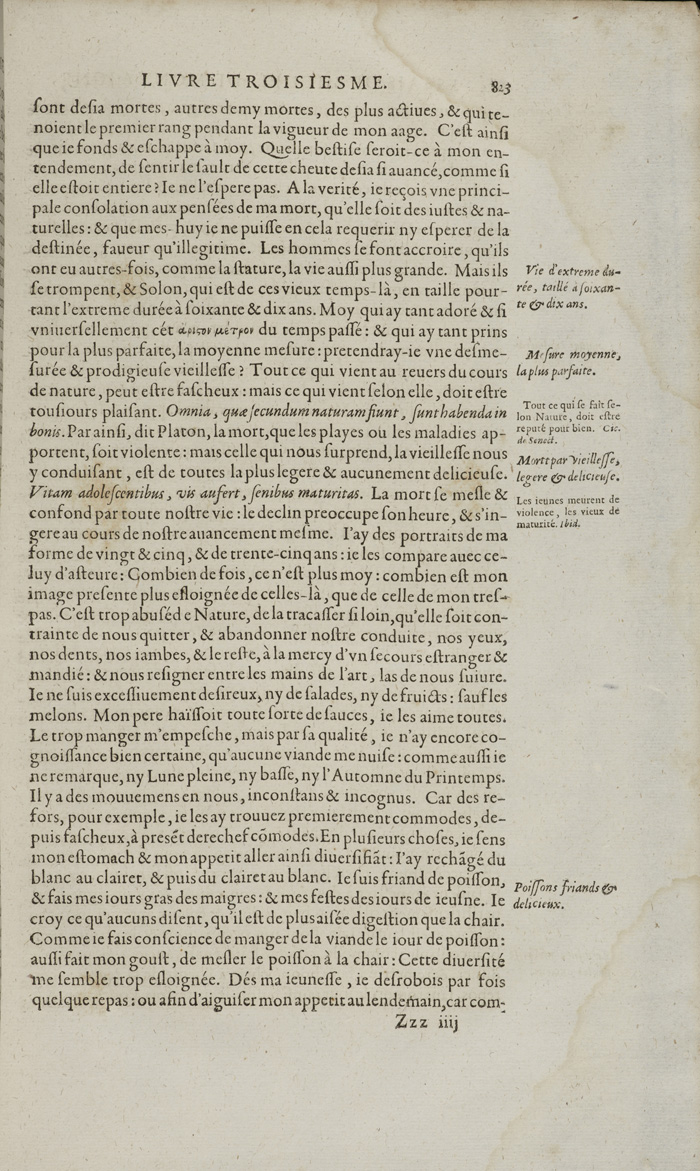 LIVRE TROISIESME. 823
ſont deſia mortes, autres demy mortes, des plus actiues, & qui te-
noient le premier rang pendant la vigueur de mon aage. C'eſt ainſi
que ie fonds & eſchappe à moy. Quelle beſtiſe ſeroit-ce à mon en-
tendement, de ſentir le ſault de cette cheute deſia ſi auancé, comme ſi
elle eſtoit entiere? Ie ne l'eſpere pas. A la verité, ie reçois vne princi-
pale conſolation aux penſées de ma mort, qu'elle ſoit des iuſtes & na-
turelles: & que mes-huy ie ne puiſſe en cela requerir ny eſperer de la
deſtinée, faueur qu'illegitime. Les hommes ſe font accroire, qu'ils
ont eu autres-fois, comme la ſtature, la vie auſſi plus grande. Mais ils
ſe trompent, & Solon, qui eſt de ces vieux temps-là, en taille pour-
tant l'extreme durée à ſoixante & dix ans. Moy qui ay tant adoré & ſi
vniuerſellement cét ἄριστον μέτρον du temps paſſé: & qui ay tant prins
pour la plus parfaite, la moyenne meſure: pretendray-ie vne deſme-
ſurée & prodigieuſe vieilleſſe? Tout ce qui vient au reuers du cours
de nature, peut eſtre faſcheux: mais ce qui vient ſelon elle, doit eſtre
touſiours plaiſant. Omnia, quæ ſecundum naturam fiunt, ſunt habenda in
bonis. Par ainſi, dit Platon, la mort, que les playes ou les maladies ap-
portent, ſoit violente: mais celle qui nous ſurprend, la vieilleſſe nous
y conduiſant, eſt de toutes la plus legere & aucunement delicieuſe.
Vitam adoleſcentibus, vis aufert, ſenibus maturitas. La mort ſe meſle &
confond par toute noſtre vie: le declin preoccupe ſon heure, & s'in-
gere au cours de noſtre auancement meſme. I'ay des portraits de ma
forme de vingt & cinq, & de trente-cinq ans: ie les compare auec ce-
luy d'aſteure: Combien de fois, ce n'eſt plus moy: combien eſt mon
image preſente plus eſloignée de celles-là, que de celle de mon treſ-
pas. C'eſt trop abuſé de Nature, de la tracaſſer ſi loin, qu'elle ſoit con-
trainte de nous quitter, & abandonner noſtre conduite, nos yeux,
nos dents, nos iambes, & le reſte, à la mercy d'vn ſecours eſtranger &
mandié: & nous reſigner entre les mains de l'art, las de nous ſuiure.
Ie ne ſuis exceſſiuement deſireux, ny de ſalades, ny de fruicts: ſauf les
melons. Mon pere haïſſoit toute ſorte de ſauces, ie les aime toutes.
Le trop manger m'empeſche, mais par ſa qualité, ie n'ay encore co-
gnoiſſance bien certaine, qu'aucune viande me nuiſe: comme auſſi ie
ne remarque, ny Lune pleine, ny baſſe, ny l'Automne du Printemps.
Il y a des mouuemens en nous, inconſtans & incognus. Car des re-
fors, pour exemple, ie les ay trouuez premierement commodes, de-
puis faſcheux, à preſẽt derechef cõmodes. En pluſieurs choſes, ie ſens
mon eſtomach & mon appetit aller ainſi diuerſifiãt: I'ay rechãgé du
blanc au clairet, & puis du clairet au blanc. Ie ſuis friand de poiſſon,
& fais mes iours gras des maigres: & mes feſtes des iours de ieuſne. Ie
croy ce qu'aucuns diſent, qu'il eſt de plus aiſée digeſtion que la chair.
Comme ie fais conſcience de manger de la viande le iour de poiſſon:
auſſi fait mon gouſt, de meſler le poiſſon à la chair: Cette diuerſité
me ſemble trop eſloignée. Dés ma ieuneſſe, ie deſrobois par fois
quelque repas: ou afin d'aiguiſer mon appetit au lendemain, car com-
Zzz iiij
Vie d'extreme du-
rée, taillé à ſoixan-
te & dix ans.
Meſure moyenne,
la plus parfaite.
Tout ce qui ſe fait ſe-
lon Nature, doit eſtre
reputé pour bien. Cic.
de Senect.
Mort par vieilleſſe,
legere & delicieuſe.
Les ieunes meurent de
violence, les vieux de
maturité. ibid.
Poiſſons friands &
delicieux.